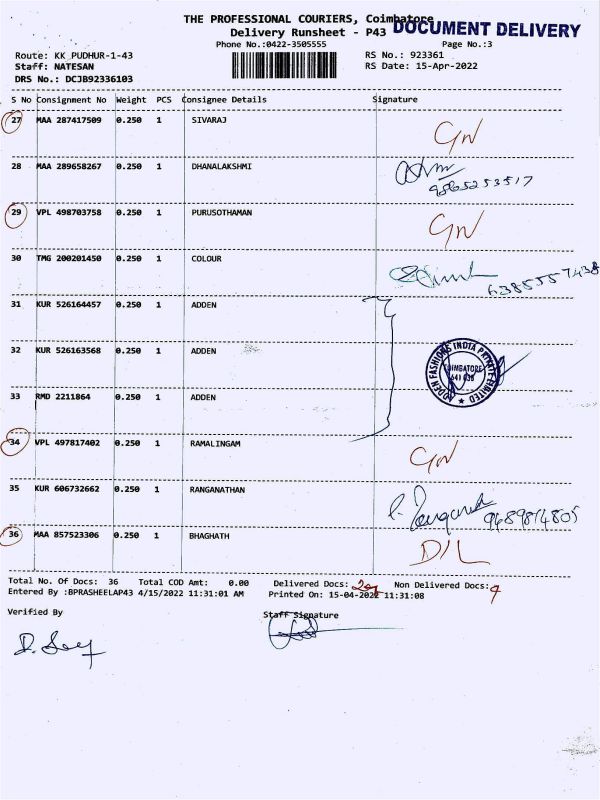 THE PROFESSIONAL COURIERS, Coimbatore
DOCUMENT DELIVERY
Delivery Runsheet - P43
Phone No.:0422-3505555
Page No.:3
Route: KK_PUDHUR-1-43
RS No.: 923361
Staff: NATESAN
RS Date: 15-Apr-2022
DRS No.: DCJB92336103
S No Consignment No Weight PCS Consignee Details Signature
27 MAA 287417509 0.250 1 SIVARAJ GN
28 MAA 289658267 0.250 1 DHANALAKSHMI
9865253517
29 VPL 498703758 0.250 1 PURUSOTHAMAN GN
30 TMG 200201450 0.250 1 COLOUR
6385557438
31 KUR 526164457 0.250 1 ADDEN
32 KUR 526163568 0.250 1 ADDEN
ADDEN FASHIONS INDIA PRIVATE LIMITED
COIMBATORE
641 038
33 RMD 2211864 0.250 1 ADDEN
34 VPL 497817402 0.250 1 RAMALINGAM GN
35 KUR 606732662 0.250 1 RANGANATHAN
9489814805
36 MAA 857523306 0.250 1 BHAGHATH D/L
Total No. Of Docs: 36 Total COD Amt: 0.00 Delivered Docs: Non Delivered Docs:
Entered By :BPRASHEELAP43 4/15/2022 11:31:01 AM Printed On: 15-04-2022 11:31:08
Verified By Staff Signature